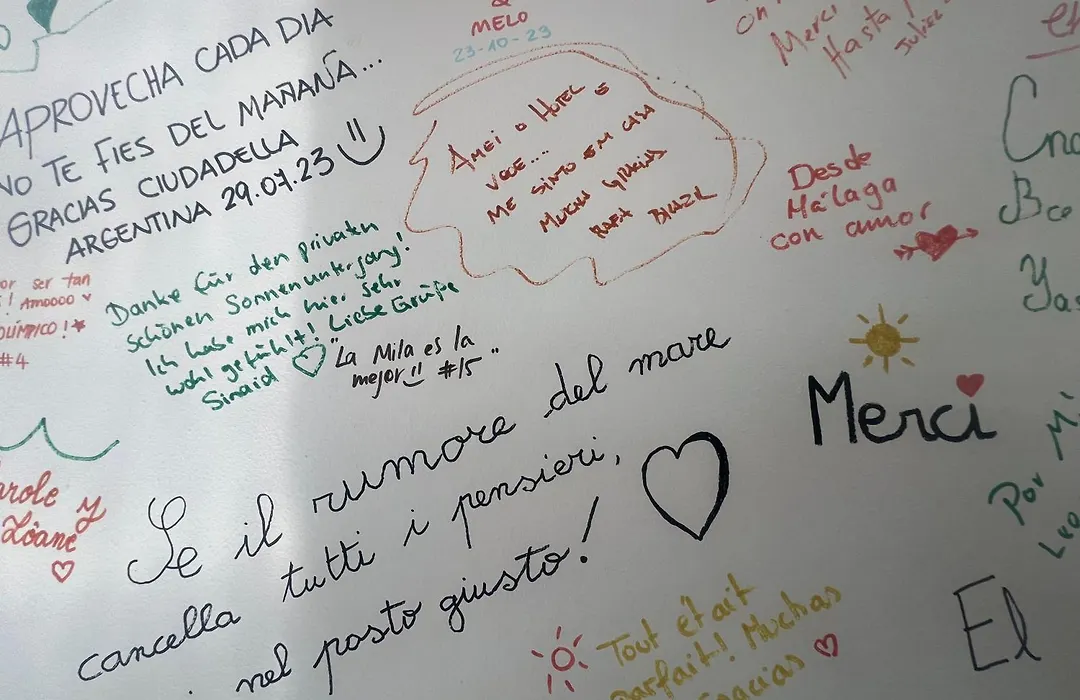 APROVECHA CADA DIA
NO TE FIES DEL MAÑANA...
GRACIAS CIUDADELLA
ARGENTINA 29.07.23
&
MELO
23-10-23
AMEI O HOTEL E
VOCE....
ME SINTO EM CASA
MUCHA GRACIAS
RAFA BRAZIL
Merci
Hasta
Desde
Málaga
con amor
or ser tan
! AMOOOO
OLÍMPICO!
#4
Danke für den privaten
schönen Sonnenuntergang!
Ich habe mich hier sehr
wohl gefühlt! Liebe Grüße
Sinaid
"La Mila es la
mejor" #15
Merci
Se il rumore del mare
cancella tutti i pensieri,
nel posto giusto!
arole y
Loane
Tout était
parfait! Muchas
gracias
Por Mi
El